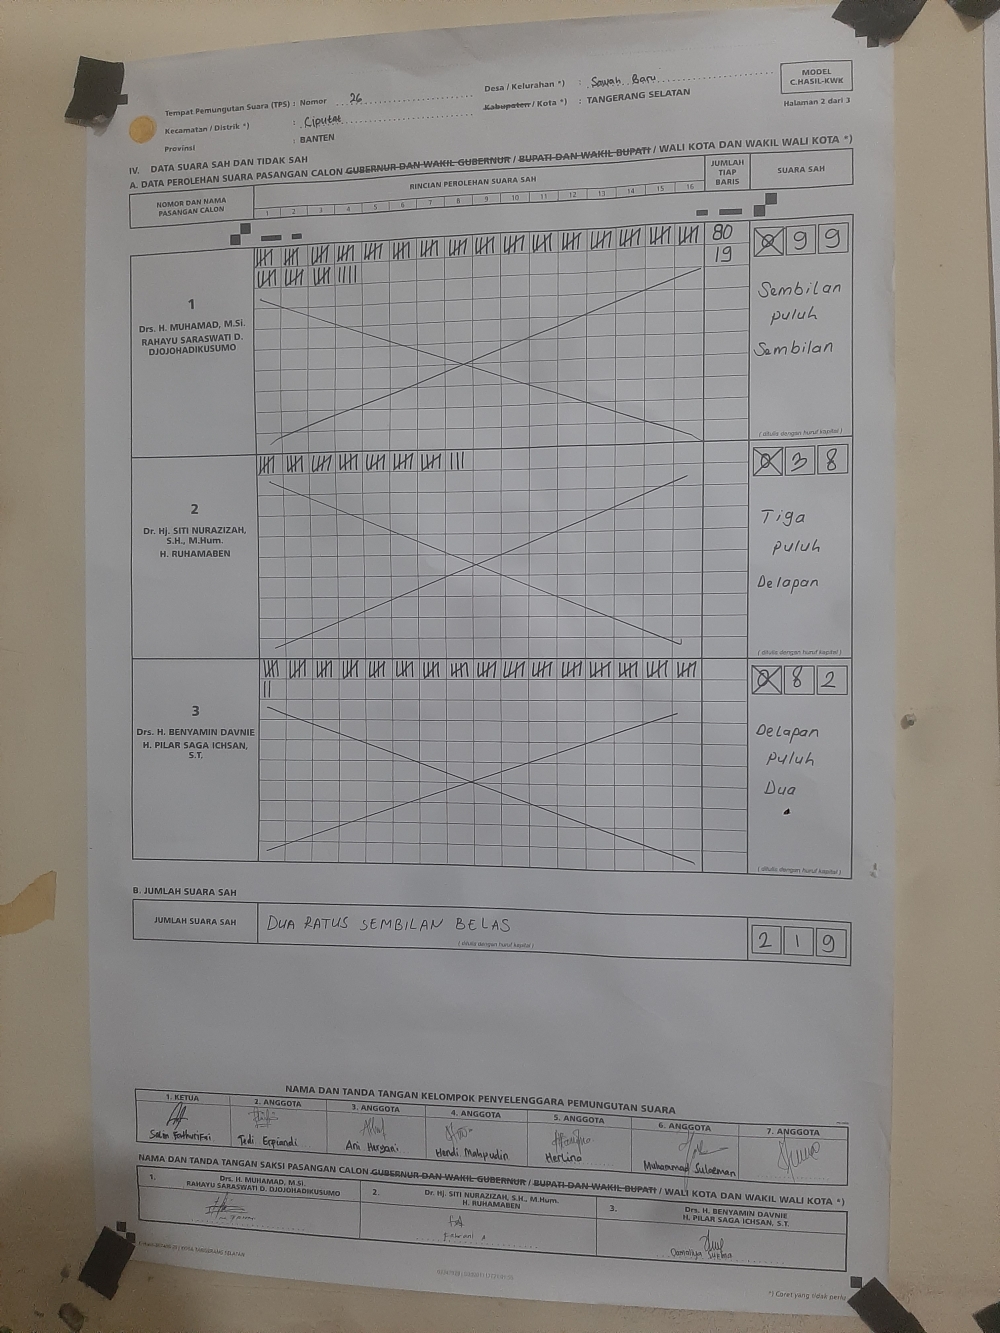 MODEL
C.HASIL-KWK
Halaman 2 dari 3
Tempat Pemungutan Suara (TPS) : Nomor 26
Desa / Kelurahan *) : Sawah Baru
Kecamatan / Distrik *) : Ciputat
Kabupaten / Kota *) : TANGERANG SELATAN
Provinsi : BANTEN
IV. DATA SUARA SAH DAN TIDAK SAH
A. DATA PEROLEHAN SUARA PASANGAN CALON GUBERNUR DAN WAKIL GUBERNUR / BUPATI DAN WAKIL BUPATI / WALI KOTA DAN WAKIL WALI KOTA *)
NOMOR DAN NAMA PASANGAN CALON
RINCIAN PEROLEHAN SUARA SAH
JUMLAH TIAP BARIS
SUARA SAH
1 2 3 4 5 6 7 8 9 10 11 12 13 14 15 16
1
Drs. H. MUHAMAD, M.Si.
RAHAYU SARASWATI D.
DJOJOHADIKUSUMO
80
19
0 9 9
Sembilan
puluh
Sembilan
( ditulis dengan huruf kapital )
2
Dr. Hj. SITI NURAZIZAH,
S.H., M.Hum.
H. RUHAMABEN
0 3 8
Tiga
puluh
Delapan
( ditulis dengan huruf kapital )
3
Drs. H. BENYAMIN DAVNIE
H. PILAR SAGA ICHSAN,
S.T.
0 8 2
Delapan
puluh
Dua
( ditulis dengan huruf kapital )
B. JUMLAH SUARA SAH
JUMLAH SUARA SAH
DUA RATUS SEMBILAN BELAS
( ditulis dengan huruf kapital )
2 1 9
NAMA DAN TANDA TANGAN KELOMPOK PENYELENGGARA PEMUNGUTAN SUARA
1. KETUA 2. ANGGOTA 3. ANGGOTA 4. ANGGOTA 5. ANGGOTA 6. ANGGOTA 7. ANGGOTA
Hendi Mahpudin
Herlina
Muhammad Sulaeman
NAMA DAN TANDA TANGAN SAKSI PASANGAN CALON GUBERNUR DAN WAKIL GUBERNUR / BUPATI DAN WAKIL BUPATI / WALI KOTA DAN WAKIL WALI KOTA *)
1. Drs. H. MUHAMAD, M.Si.
RAHAYU SARASWATI D. DJOJOHADIKUSUMO
2. Dr. Hj. SITI NURAZIZAH, S.H., M.Hum.
H. RUHAMABEN
3. Drs. H. BENYAMIN DAVNIE
H. PILAR SAGA ICHSAN, S.T.
*) Coret yang tidak perlu